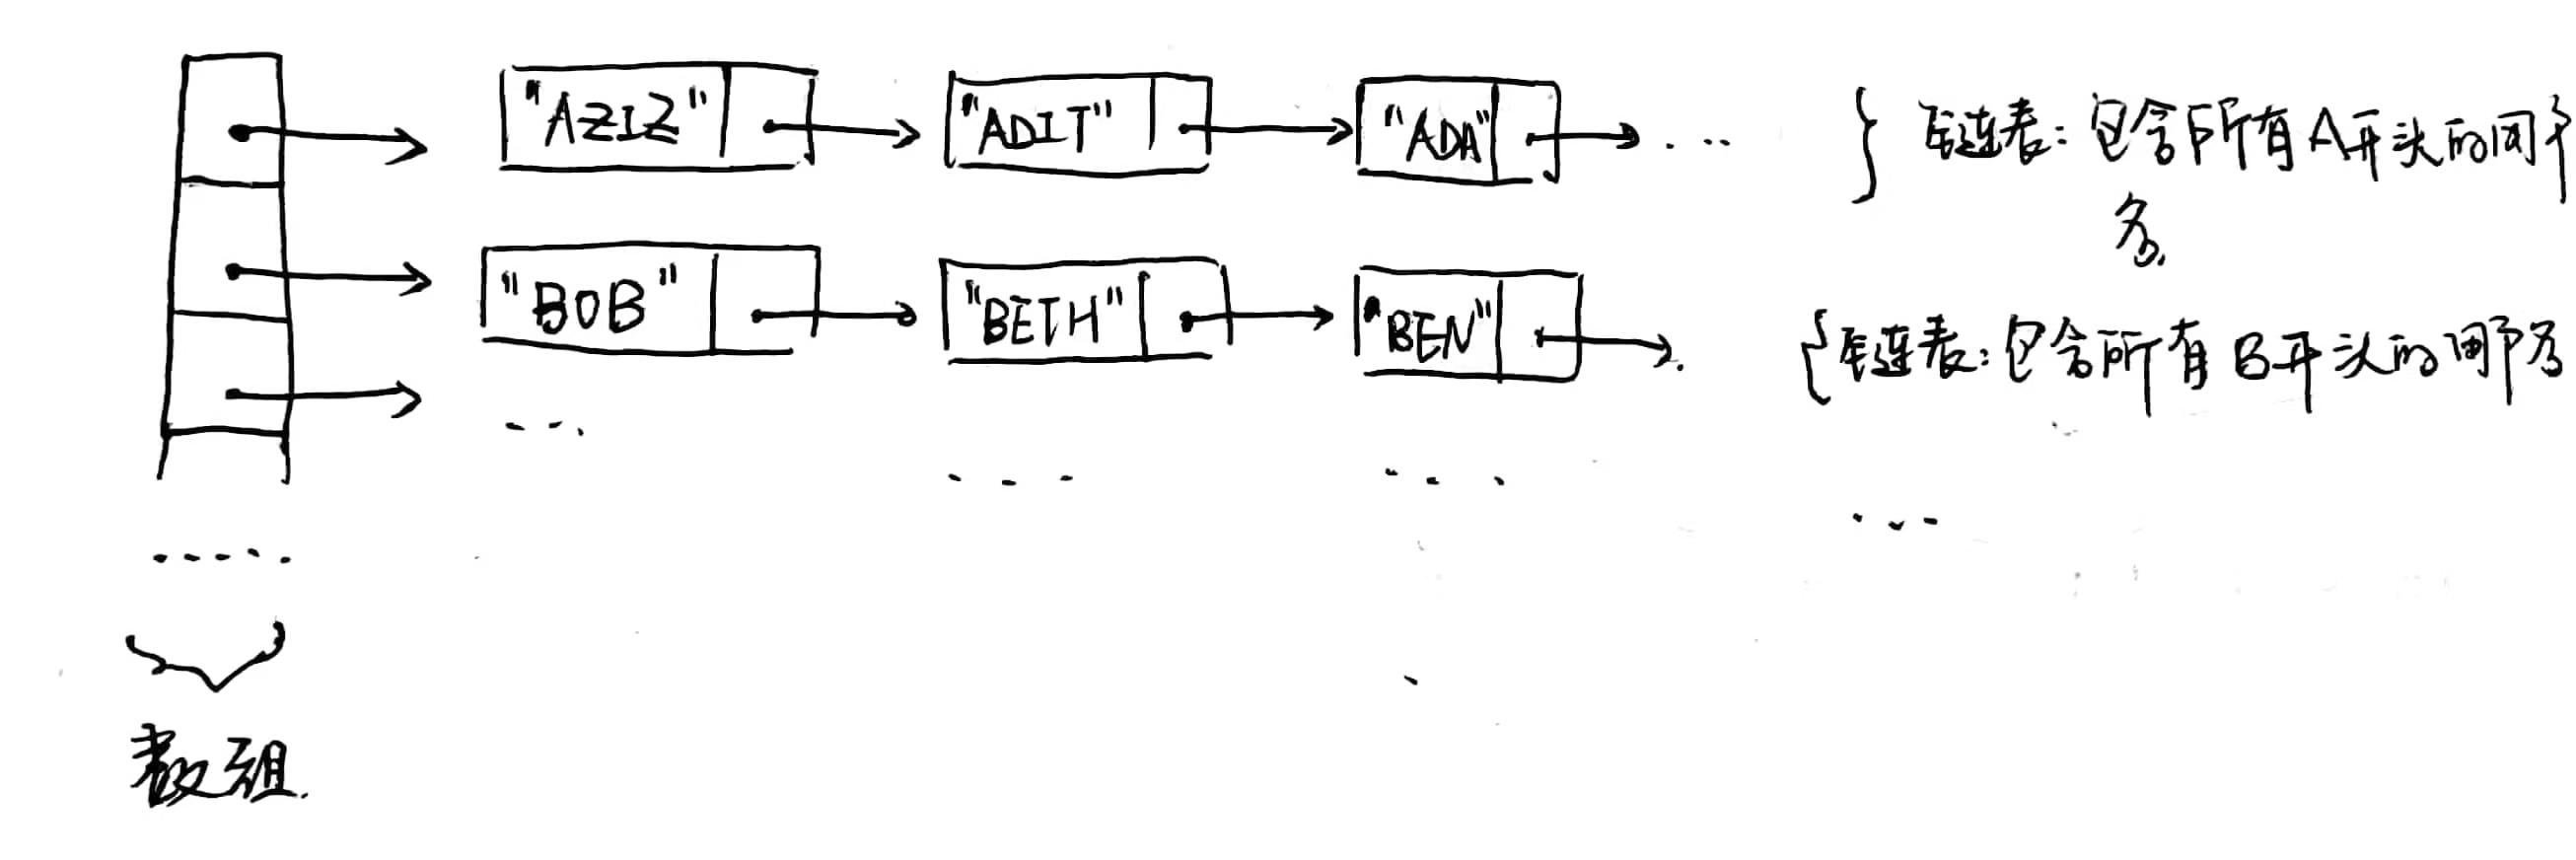 "AZIZ" "ADIT" "ADA" ... } 链表: 包含所有A开头的用户
名.
"BOB" "BETH" "BEN" { 链表: 包含所有B开头的用户名
...
... ... ...
.....
数组.